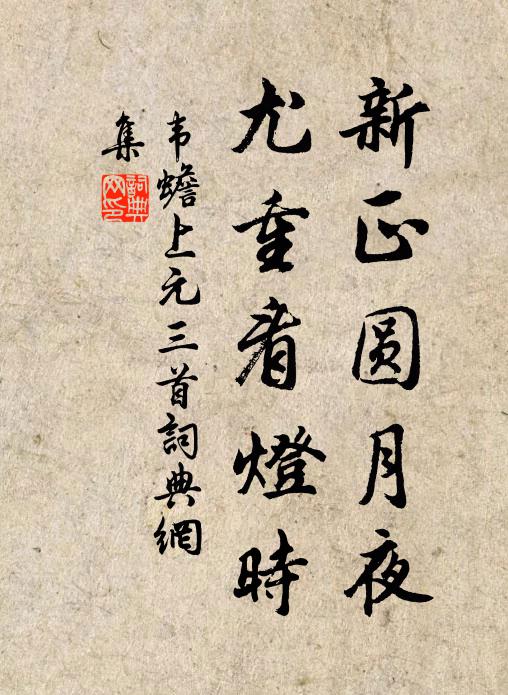 新正圆月夜
尤重看燈時
韦蟾上元三首詞典網
集
詞典网印